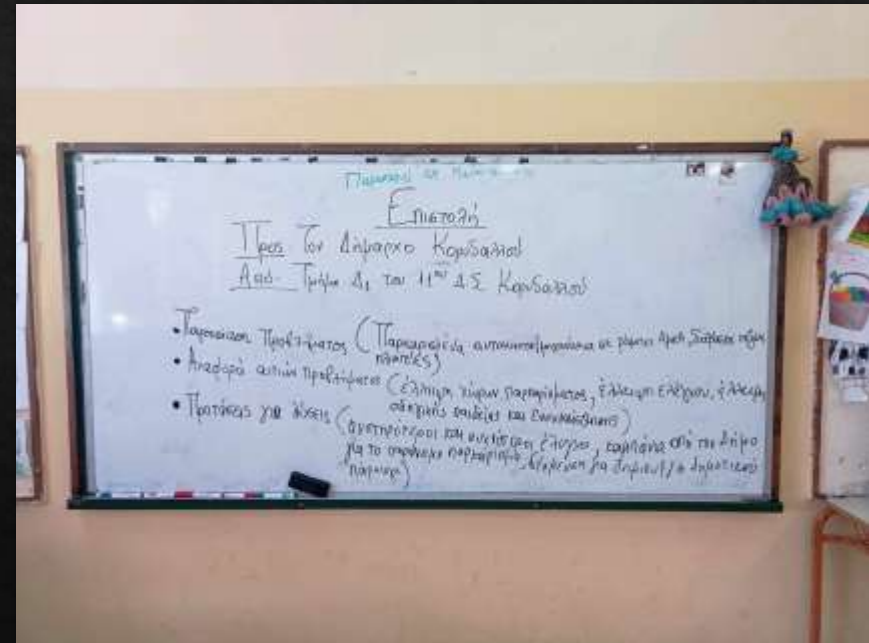 Επιστολή
Προς Τον Δήμαρχο Κορυδαλλού
Από Τμήμα Δ1 του 11ου ΔΣ Κορυδαλλού
• Παρουσίαση Προβλήματος (Παρκαρισμένα αυτοκίνητα σε ράμπες ΑμεΑ, διαβάσεις πεζών,
πλατείες)
• Αναφορά αιτιών προβλήματος (έλλειψη χώρων παρκαρίσματος, έλλειψη ελέγχου, έλλειψη
οδηγικής παιδείας και ενσυναίσθησης)
• Προτάσεις για λύσεις (αυστηρότεροι και έλεγχοι, καμπάνια από τον Δήμο
για το παράνομο παρκάρισμα, για δημοτικού
πάρκινγκ)